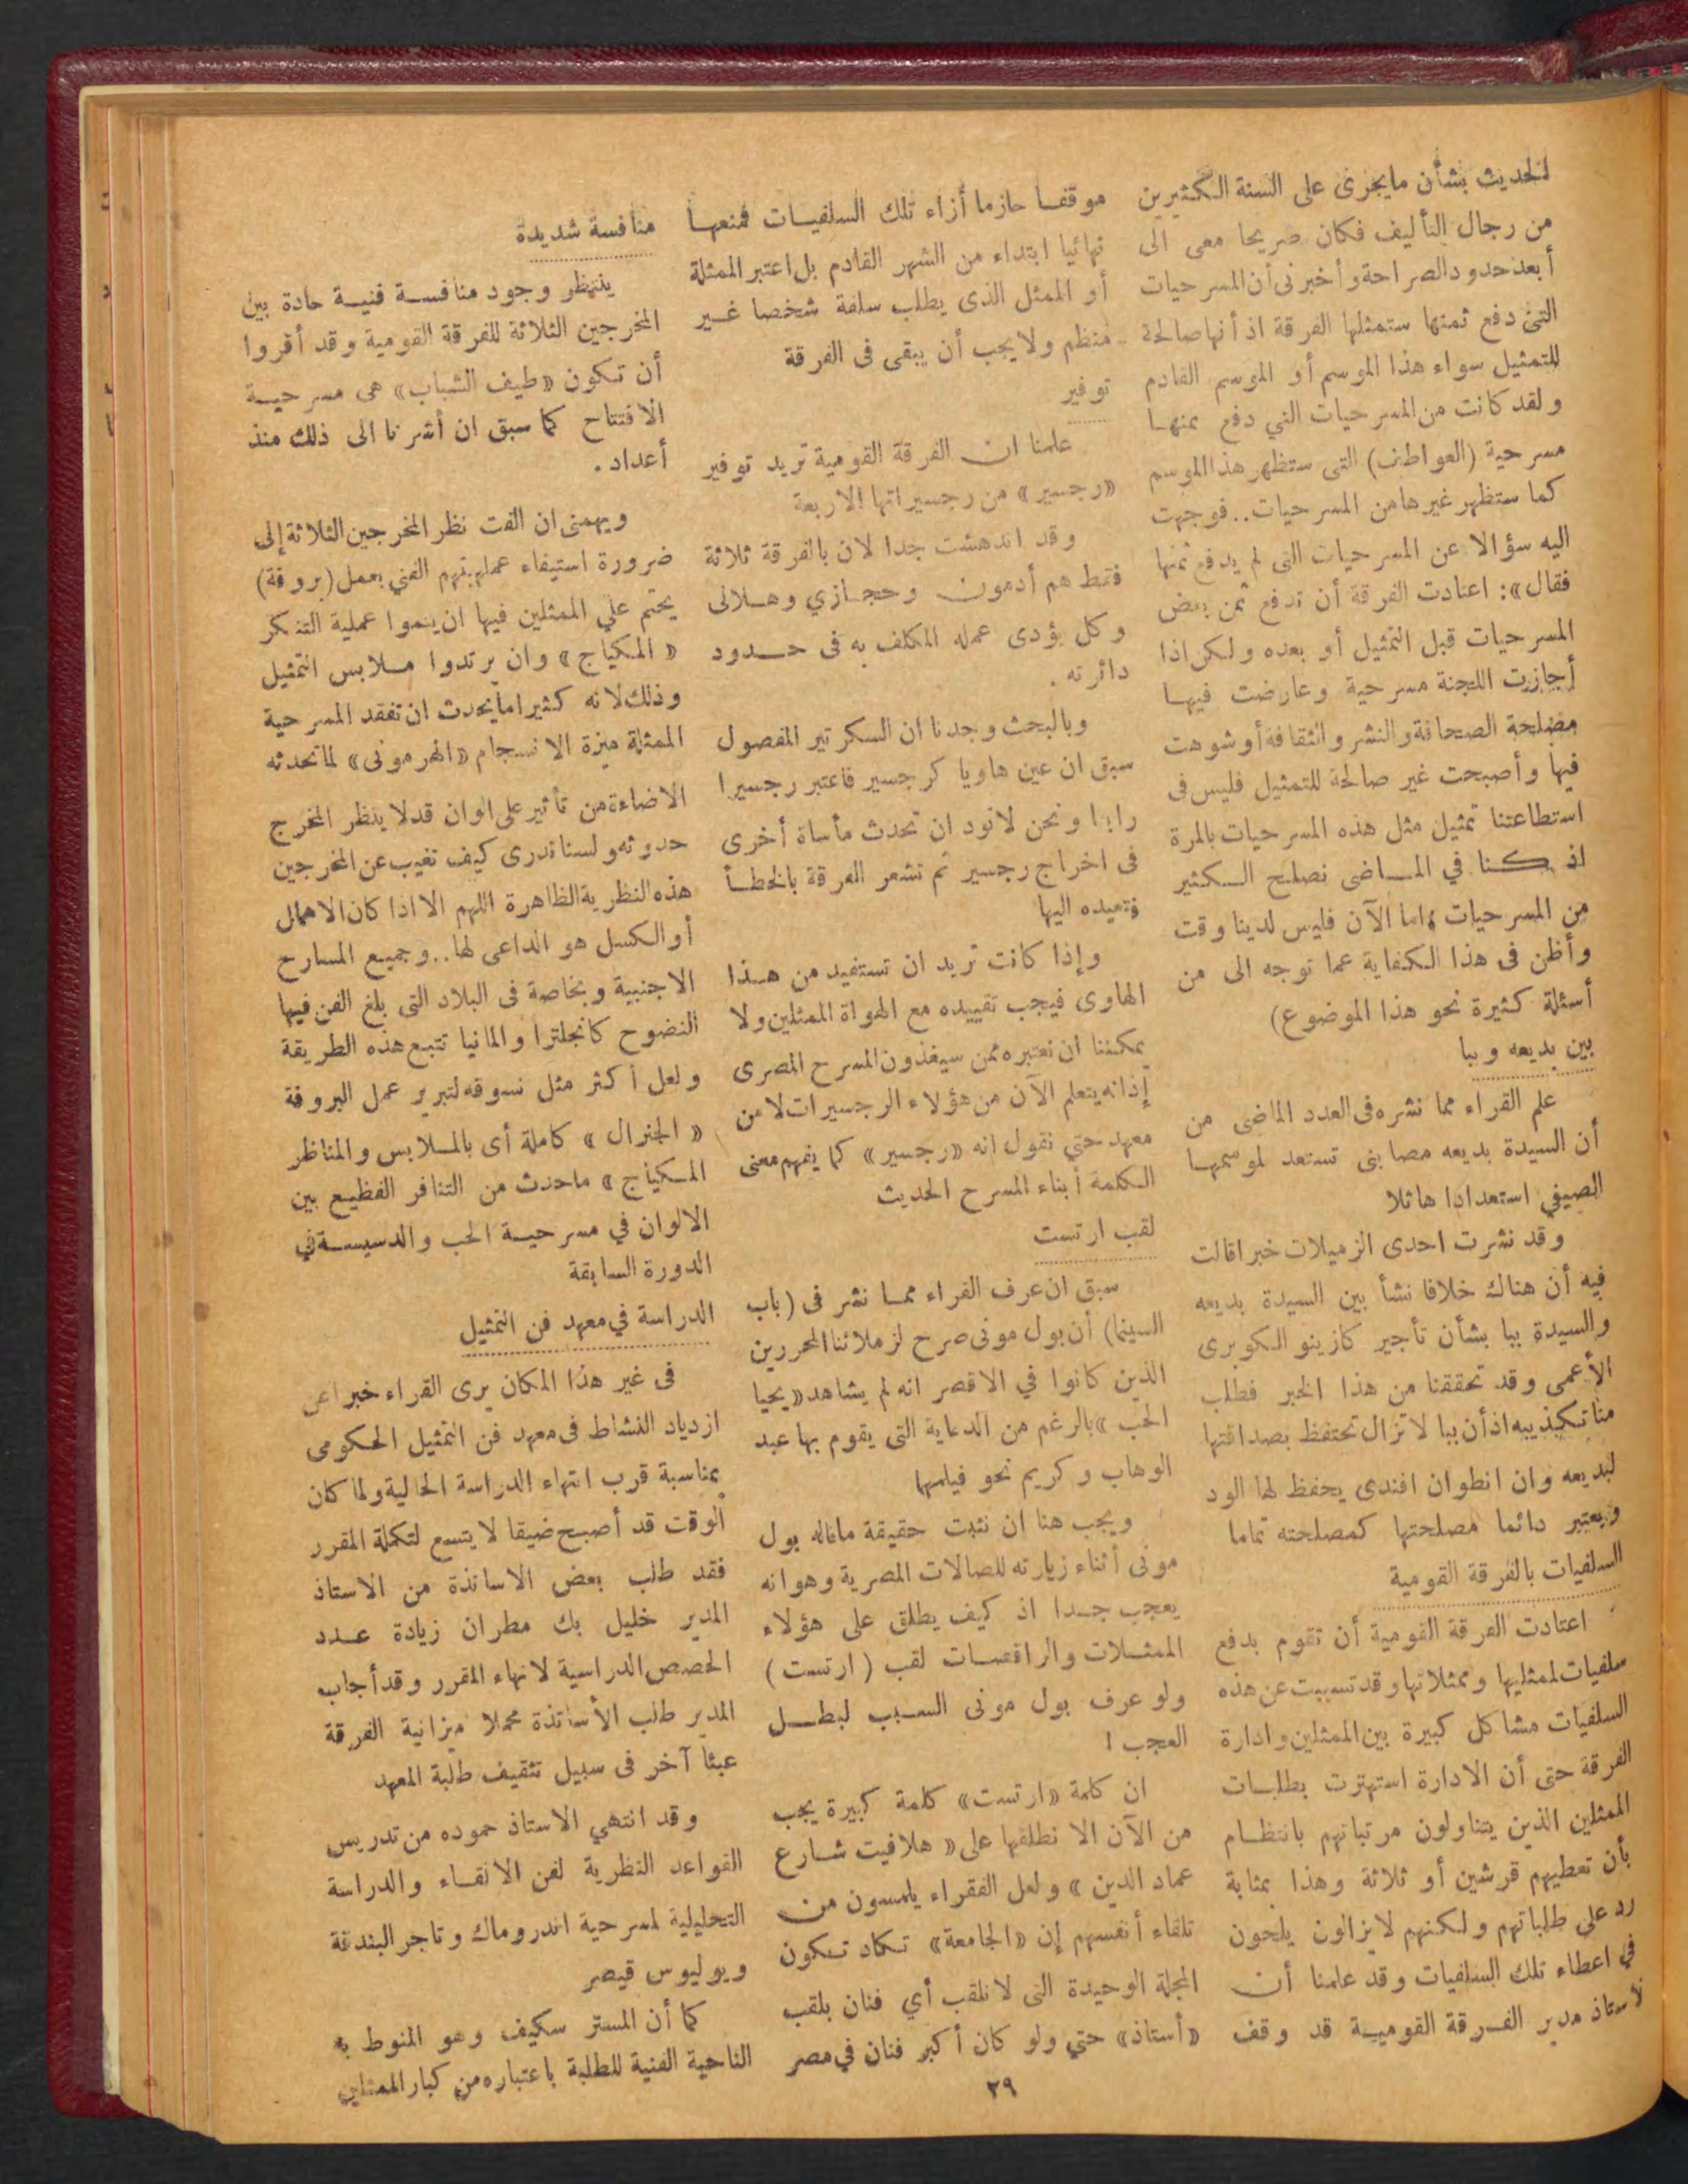 لتحديث بشأن مايجرى على السنة الكثيرين
من رجال التأليف فكان صريحا معى الى
أبعد حدود الصراحة وأخبرنى أن المسرحيات
التى دفع ثمنها ستمثلها الفرقة اذ أنها صالحة
للتمثيل سواء هذا الموسم أو الموسم القادم
ولقد كانت من المسرحيات التي دفع ثمنها
مسرحية (العواطف) التى ستظهر هذا الموسم
كما ستظهر غيرها من المسرحيات .. فوجهت
اليه سؤالا عن المسرحيات التى لم يدفع ثمنها
فقال» : اعتادت الفرقة أن تدفع ثمن بعض
المسرحيات قبل التمثيل أو بعده ولكن اذا
أجازت اللجنة مسرحية وعارضت فيها
مصلحة الصحافة والنشر والثقافة أو شوهت
فيها وأصبحت غير صالحة للتمثيل فليس فى
استطاعتنا تمثيل مثل هذه المسرحيات بالمرة
اذ كنا في الماضى نصلح الكثير
من المسرحيات واما الآن فليس لدينا وقت
وأظن فى هذا الكفاية عما توجه الى من
أسئلة كثيرة نحو هذا الموضوع)
بين بديعه وببا
علم القراء مما نشره فى العدد الماضى من
أن السيدة بديعه مصابنى تستعد لموسمها
الصيفي استعدادا هائلا
وقد نشرت احدى الزميلات خبرا قالت
فيه أن هناك خلافا نشأ بين السيدة بديعه
والسيدة ببا بشأن تأجير كازينو الكوبرى
الأعمى وقد تحققنا من هذا الخبر فطلب
منا تكذيبه اذ أن ببا لا تزال تحتفظ بصداقتها
لبديعه وان انطوان افندى يحفظ لها الود
ويعتبر دائما مصلحتها كمصلحته تماما
السلفيات بالفرقة القومية
اعتادت الفرقة القومية أن تقوم بدفع
سلفيات لممثليها وممثلاتها وقد تسببت عن هذه
السلفيات مشاكل كبيرة بين الممثلين وادارة
الفرقة حتى أن الادارة استهترت بطلبات
الممثلين الذين يتناولون مرتباتهم بانتظام
بأن تعطيهم قرشين أو ثلاثة وهذا بمثابة
رد على طلباتهم ولكنهم لايزالون يلحون
في اعطاء تلك السلفيات وقد علمنا أن
لأستاذ مدير الفرقة القومية قد وقف
موقفا حازما أزاء تلك السلفيات فمنعها
نهائيا ابتداء من الشهر القادم بل اعتبر الممثلة
أو الممثل الذى يطلب سلفة شخصا غير
منظم ولا يجب أن يبقى فى الفرقة
توفير
علمنا ان الفرقة القومية تريد توفير
«رجسير» من رجسيراتها الاربعة
وقد اندهشت جدا لان بالفرقة ثلاثة
فقط هم أدمون وحجازي وهلالى
وكل يؤدى عمله المكلف به فى حدود
دائرته .
وبالبحث وجدنا ان السكرتير المفصول
سبق ان عين هاويا كرجسير فاعتبر رجسيرا
رابعا ونحن لانود ان تحدث مأساة أخرى
فى اخراج رجسير ثم تشعر الفرقة بالخطأ
فتعيده اليها
وإذا كانت تريد ان تستفيد من هذا
الهاوى فيجب تقييده مع الهواة الممثلين ولا
يمكننا ان نعتبره ممن سيغذون المسرح المصرى
إذ انه يتعلم الآن من هؤلاء الرجسيرات لا من
معهد حتي نقول انه «رجسير» كما يفهم معنى
الكلمة أبناء المسرح الحديث
لقب ارتست
سبق ان عرف القراء مما نشر فى (باب
السينما) أن بول مونى صرح لزملائنا المحررين
الذين كانوا في الاقصر انه لم يشاهد «يحيا
الحب» بالرغم من الدعاية التى يقوم بها عبد
الوهاب وكريم نحو فيلمها
ويجب هنا ان نثبت حقيقة ماقاله بول
مونى أثناء زيارته للصالات المصرية وهو انه
يعجب جدا اذ كيف يطلق على هؤلاء
الممثلات والراقصات لقب ( ارتست )
ولو عرف بول مونى السبب لبطل
العجب !
ان كلمة «ارتست» كلمة كبيرة يجب
من الآن الا نطلقها على « هلافيت شارع
عماد الدين » ولعل الفقراء يلمسون من
تلقاء أنفسهم إن «الجامعة» تكاد تكون
المجلة الوحيدة التى لا نلقب أي فنان بلقب
«أستاذ» حتي ولو كان أكبر فنان في مصر
منافسة شديدة
ينتظر وجود منافسة فنية حادة بين
المخرجين الثلاثة للفرقة القومية وقد أقروا
أن تكون «طيف الشباب» هى مسرحية
الافتتاح كما سبق ان أشرنا الى ذلك منذ
أعداد .
ويهمنى ان الفت نظر المخرجين الثلاثة إلى
ضرورة استيفاء عمليتهم الفني بعمل (بروفة)
يحتم علي الممثلين فيها ان يتموا عملية التنكر
« المكياج » وان يرتدوا ملابس التمثيل
وذلك لانه كثيرا مايحدث ان تفقد المسرحية
الممثلة ميزة الانسجام «الهرمونى» لما تحدثه
الاضاءة من تأثير على الوان قد لا ينظر المخرج
حدوثه ولسنا ندرى كيف تغيب عن المخرجين
هذه النظرية الظاهرة اللهم الا اذا كان الاهمال
أو الكسل هو الداعى لها .. وجميع المسارح
الاجنبية وبخاصة فى البلاد التى بلغ الفن فيها
النضوج كانجلترا والمانيا تتبع هذه الطريقة
ولعل أكثر مثل نسوقه لتبرير عمل البروفة
« الجنرال » كاملة أى بالملابس والمناظر
المكياج » ماحدث من التنافر الفظيع بين
الالوان في مسرحية الحب والدسيسة في
الدورة السابقة
الدراسة في معهد فن التمثيل
فى غير هذا المكان يرى القراء خبرا عن
ازدياد النشاط فى معهد فن التمثيل الحكومى
بمناسبة قرب انتهاء الدراسة الحالية ولما كان
الوقت قد أصبح ضيقا لا يتسع لتكملة المقرر
فقد طلب بعض الاساتذة من الاستاذ
المدير خليل بك مطران زيادة عدد
الحصص الدراسية لانهاء المقرر وقد أجاب
المدير طلب الأساتذة محملا ميزانية الفرقة
عبئا آخر فى سبيل تثقيف طلبة المعهد
وقد انتهي الاستاذ حموده من تدريس
القواعد النظرية لفن الالقاء والدراسة
التحليلية لمسرحية اندروماك وتاجر البندقة
ويوليوس قيصر
كما أن المستر سكيف وهو المنوط به
الناحية الفنية للطلبة باعتباره من كبار الممثلين
٢٩